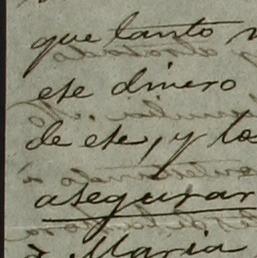 que tanto
ese dinero
de ese, y los
asegurar
à Maria